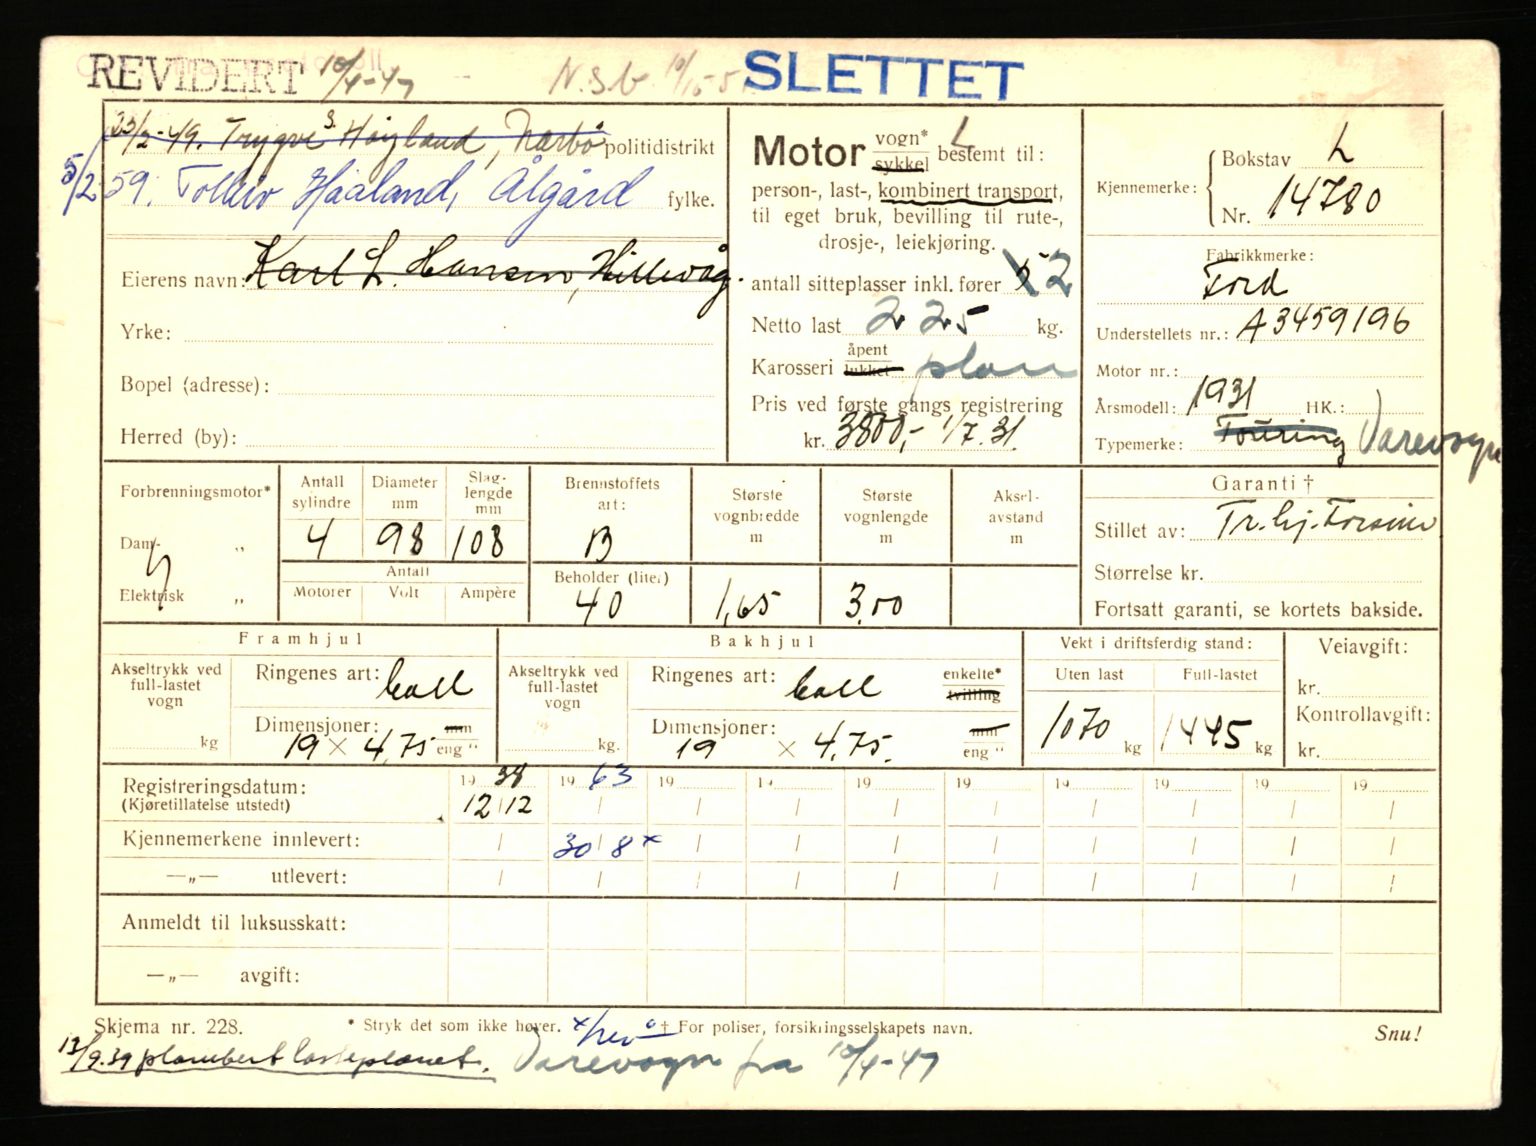 REVIDERT 10/4-47 N.S.b. SLETTET
23/2-49. Trygve S. Høyland, Nærbø politidistrikt
5/2 59. Tolleiv Haaland, Ålgård fylke.
Eierens navn: Karl L. Hansen, Hillevåg.
Yrke:
Bopel (adresse):
Herred (by):
Motor vogn* sykkel bestemt til: L
person-, last-, kombinert transport,
til eget bruk, bevilling til rute-,
drosje-, leiekjøring.
antall sitteplasser inkl. fører 5 2
Netto last 225 kg.
Karosseri åpent lukket plan
Pris ved første gangs registrering
kr. 3800,- 1/7.31.
Kjennemerke: Bokstav L
Nr. 14780
Fabrikkmerke:
Ford
Understellets nr.: A3459196
Motor nr.:
Årsmodell: 1931 HK.:
Typemerke: Touring Varevogn
Forbrenningsmotor* Antall sylindre Diameter mm Slag-lengde mm Brennstoffets art: Største vognbredde m Største vognlengde m Aksel-avstand m
Damp- „ 4 98 108 B
Antall Beholder (liter)
Elektrisk „ Motorer Volt Ampère 40 1,65 3,00
Garanti †
Stillet av: Tr.hj. Forsinr
Størrelse kr.
Fortsatt garanti, se kortets bakside.
Framhjul Bakhjul Vekt i driftsferdig stand: Veiavgift:
Akseltrykk ved full-lastet vogn kg Ringenes art: ball
Dimensjoner: 19 × 4,75 mm eng "
Akseltrykk ved full-lastet vogn kg. Ringenes art: ball enkelte* tvilling
Dimensjoner: 19 × 4,75. mm eng "
Uten last Full-lastet kr.
1070 kg 1445 kg Kontrollavgift:
kr.
Registreringsdatum: 19 38 19 63 19 19 19 19 19 19 19 19
(Kjøretillatelse utstedt) 12/12 / / / / / / / / /
Kjennemerkene innlevert: / 30/8 x / / / / / / / /
—„— utlevert: / / / / / / / / / /
Anmeldt til luksusskatt:
—„— avgift:
Skjema nr. 228. * Stryk det som ikke høver. † For poliser, forsikringsselskapets navn. Snu!
13/9.39 plombert lasteplanet. Varevogn fra 10/4-47